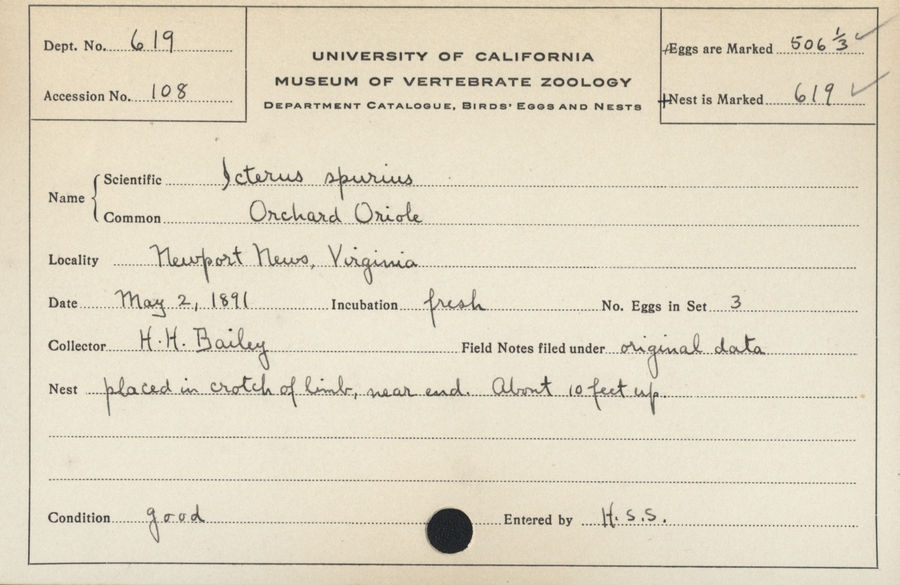 Dept. No. 619
Accession No. 108
UNIVERSITY OF CALIFORNIA
MUSEUM OF VERTEBRATE ZOOLOGY
DEPARTMENT CATALOGUE, BIRDS' EGGS AND NESTS
Eggs are Marked 506 1/3
Nest is Marked 619
Name
Scientific Icterus spurius
Common Orchard Oriole
Locality Newport News, Virginia
Date May 2, 1891 Incubation fresh No. Eggs in Set 3
Collector H. H. Bailey Field Notes filed under original data
Nest placed in crotch of limb, near end. About 10 feet up.
Condition good Entered by H.S.S.